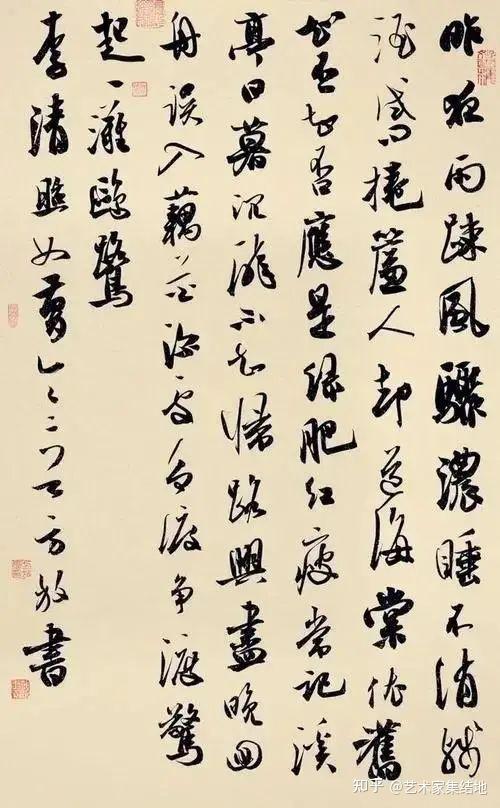 昨夜雨疎風驟濃睡不消殘
酒試問捲簾人却道海棠依舊
知否知否應是綠肥紅瘦常記溪
亭日暮沉醉不知歸路興盡晚回
舟誤入藕花深處爭渡爭渡驚
起一灘鷗鷺
李清照如夢令二方放書
知乎 @艺术家集结地